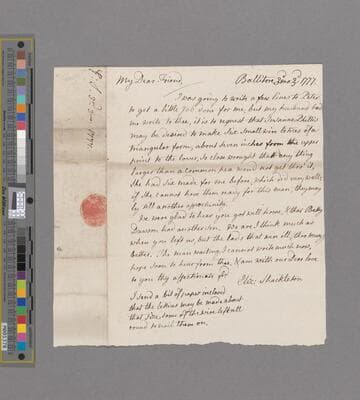 My Dear Friend Ballitore 3mo 3d 1777.
I was going to write a few lines to Peter
to get a little Job done for me, but my husband bid
me write to thee, it is to request that
may be desired to make Six Small wire of a
triangular form, about seven inches from the upper
point to the lower, so close wrought that any thing
larger than a common pea would not get thro' it,
She had Six made for me before, which did very well;
if She cannot have them ready for this man, they may
by all another opportunity.
We were glad to hear you got well home, & that Betty
Dawson has another Son. We are I think much as
when you left us, but the lads that were ill, this many
better. The man waiting I cannot write much more,
hope soon to hear from thee, & am with our Dear love
to you thy affectionate frd
Eliz: Shackleton
I send a bit of paper inclosed
that the may be made about
that size, some of the wire left all
round to nail them on.
1777.